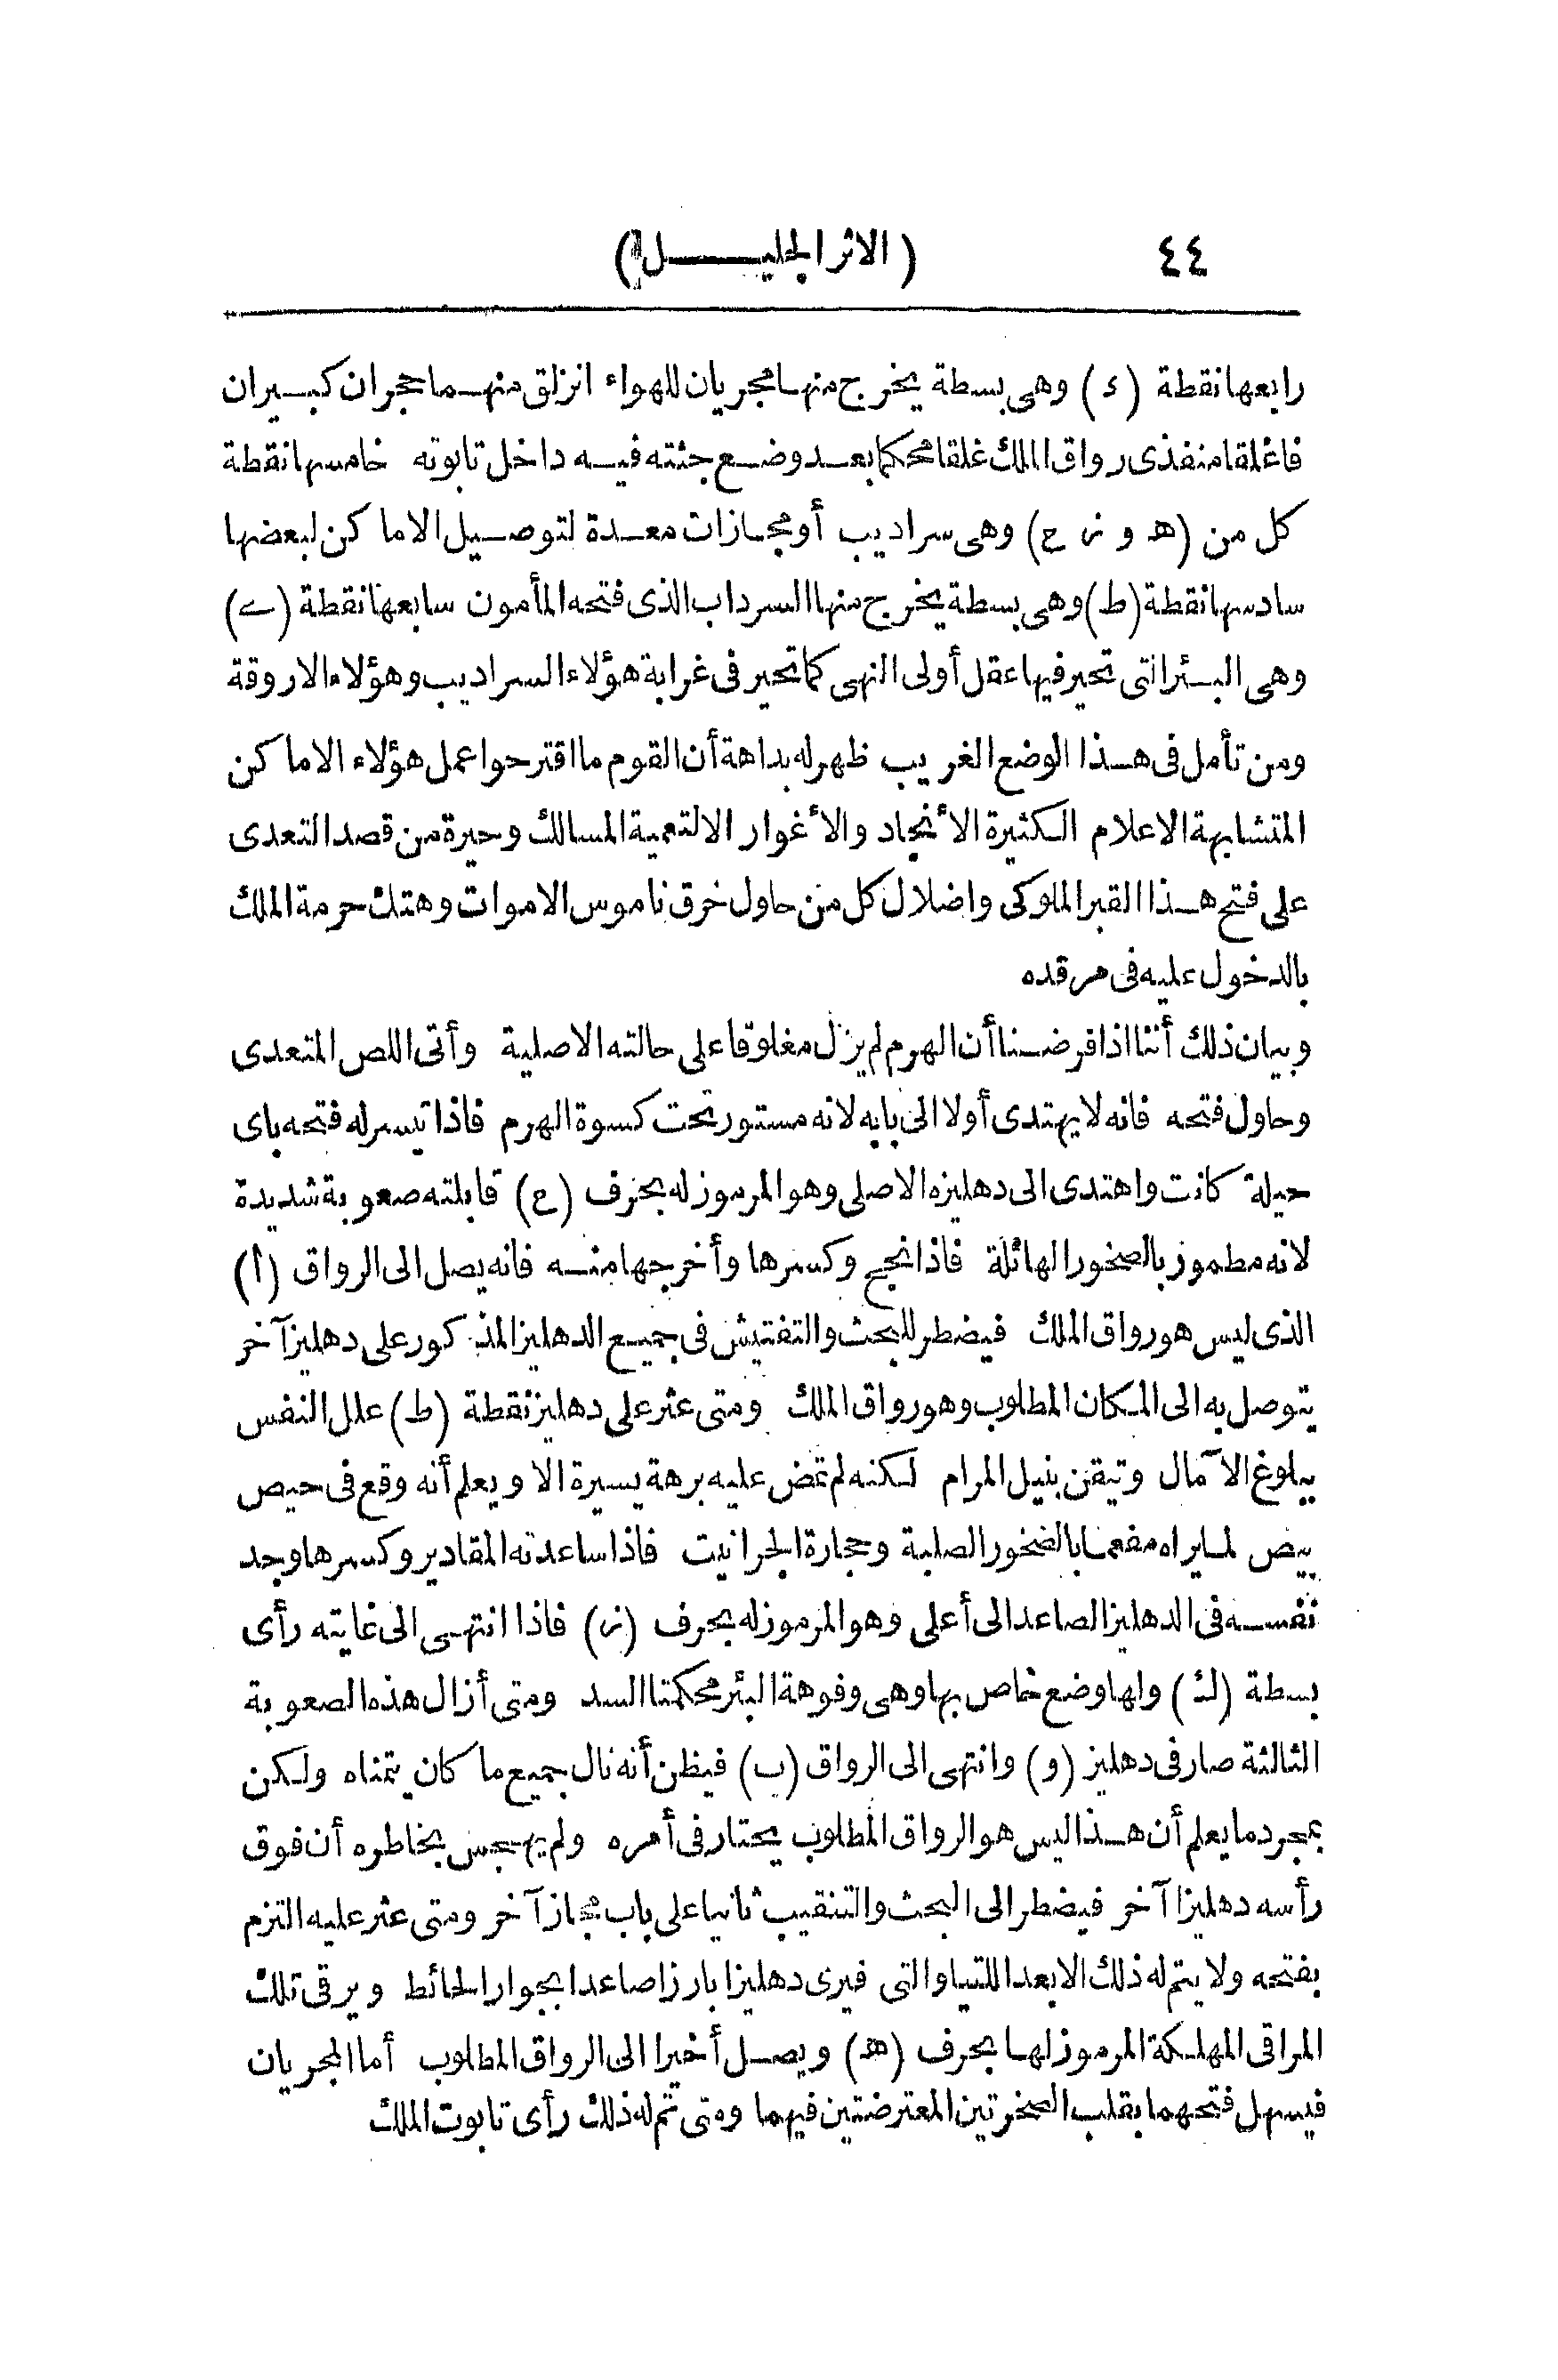 ٤٤
(الاثر الجليـــل)
رابعها نقطة (ء) وهى بسطة يخرج منها مجريان للهواء انزلق منهما حجران كبيران
فاغلقا منفذى رواق الملك غلقا محكما بعد وضع جثته فيه داخل تابوته خامسها نقطة
كل من (هـ و ز ح) وهى سراديب أو مجازات معدة لتوصيل الاماكن لبعضها
سادسها نقطة (ط) وهى بسطة يخرج منها السرداب الذى فتحه المأمون سابعها نقطة (ى)
وهى البئر التى تحير فيها عقل أولى النهى كما تحير فى غرابة هؤلاء السراديب وهؤلاء الاروقة
ومن تأمل فى هذا الوضع الغريب ظهر له بداهة أن القوم ما اقترحوا عمل هؤلاء الاماكن
المتشابهة الاعلام الكثيرة الأنجاد والأغوار الا لتعمية المسالك وحيرة من قصد التعدى
على فتح هذا القبر الملوكى واضلال كل من حاول خرق ناموس الاموات وهتك حرمة الملك
بالدخول عليه فى مرقده
وبيان ذلك أننا اذا فرضنا أن الهرم لم يزل مغلوقا على حالته الاصلية وأتى اللص المتعدى
وحاول فتحه فانه لا يهتدى أولا الى بابه لانه مستور تحت كسوة الهرم فاذا تيسر له فتحه باى
حيلة كانت واهتدى الى دهليزه الاصلى وهو المرموز له بحرف (ح) قابلته صعوبة شديدة
لانه مطموز بالصخور الهائلة فاذا نجح وكسرها وأخرجها منه فانه يصل الى الرواق (أ)
الذى ليس هو رواق الملك فيضطر للبحث والتفتيش فى جميع الدهليز المذكور على دهليز آخر
يتوصل به الى المكان المطلوب وهو رواق الملك ومتى عثر على دهليز نقطة (ط) علل النفس
ببلوغ الآمال وتيقن بنيل المرام لكنه لم تمض عليه برهة يسيرة الا ويعلم أنه وقع فى حيص
بيص لما يراه مفعما بالصخور الصلبة وحجارة الجرانيت فاذا ساعدته المقادير وكسرها وجد
نفسه فى الدهليز الصاعد الى أعلى وهو المرموز له بحرف (ز) فاذا انتهى الى غايته رأى
بسطة (ك) ولها وضع خاص بها وهى وفوهة البئر محكمتا السد ومتى أزال هذه الصعوبة
الثالثة صار فى دهليز (و) وانتهى الى الرواق (ب) فيظن أنه نال جميع ما كان يتمناه ولكن
بمجرد ما يعلم أن هذا ليس هو الرواق المطلوب يحتار فى أمره ولم يهجس بخاطره أن فوق
رأسه دهليزا آخر فيضطر الى البحث والتنقيب ثانيا على باب مجاز آخر ومتى عثر عليه التزم
بفتحه ولا يتم له ذلك الا بعد اللتيا والتى فيرى دهليزا بارزا صاعدا بجوار الحائط ويرقى تلك
المراقى المهلكة المرموز لها بحرف (هـ) ويصل أخيرا الى الرواق المطلوب أما المجريان
فيسهل فتحهما بقلب الصخرتين المعترضتين فيهما ومتى تم له ذلك رأى تابوت الملك